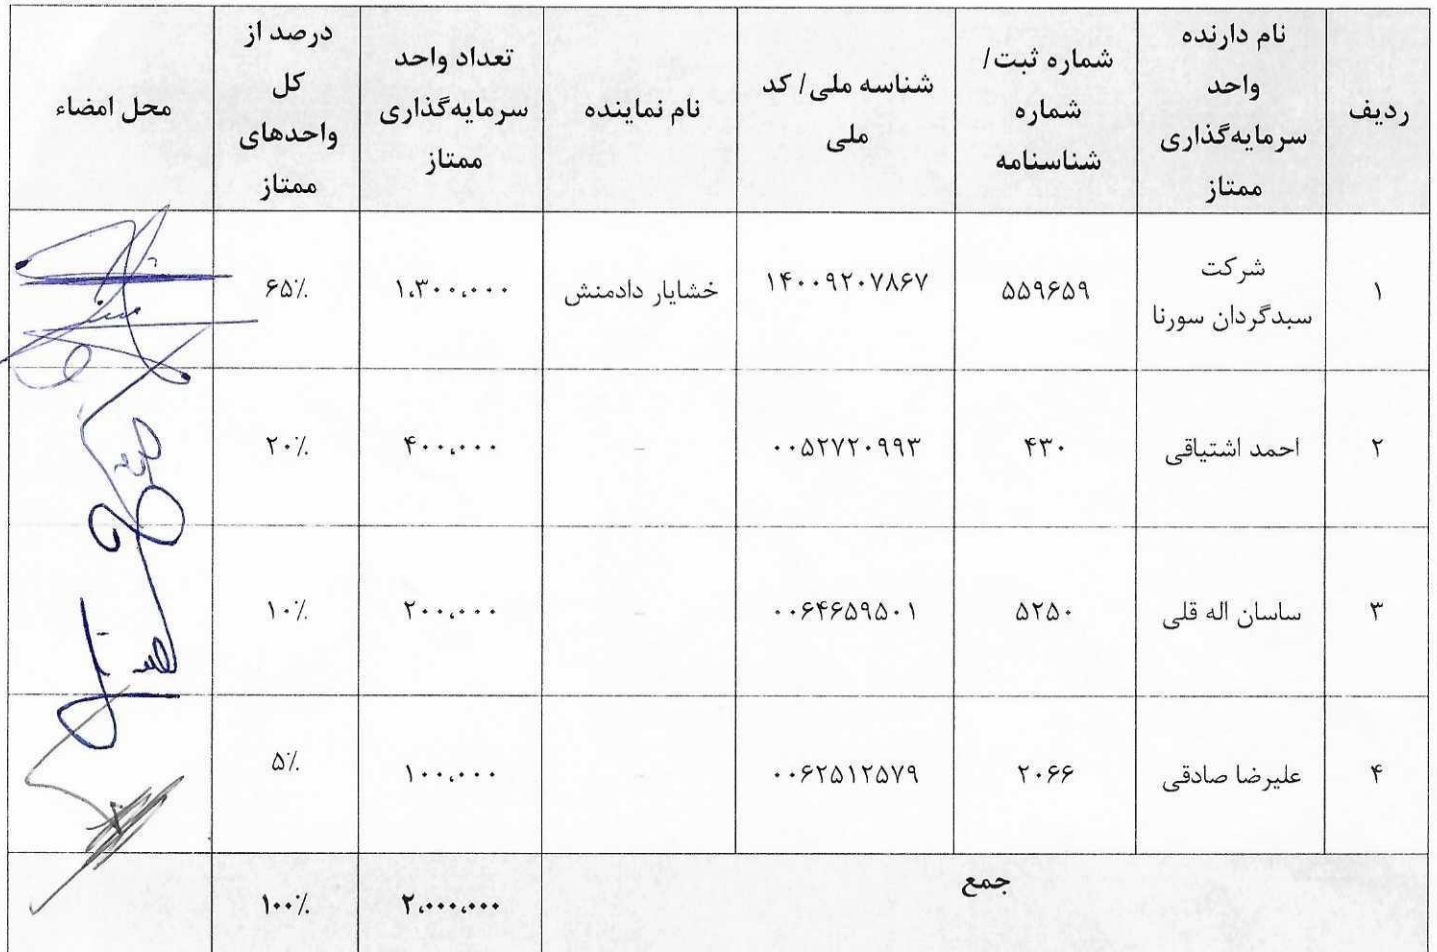 ردیف
نام دارنده
واحد
سرمایه‌گذاری
ممتاز
شماره ثبت/
شماره
شناسنامه
شناسه ملی/ کد
ملی
نام نماینده
تعداد واحد
سرمایه‌گذاری
ممتاز
درصد از
کل
واحدهای
ممتاز
محل امضاء
۱
شرکت
سبدگردان سورنا
۵۵۹۶۵۹
۱۴۰۰۹۲۰۷۸۶۷
خشایار دادمنش
۱،۳۰۰،۰۰۰
۶۵٪
۲
احمد اشتیاقی
۴۳۰
۰۰۵۲۷۲۰۹۹۳
-
۴۰۰،۰۰۰
۲۰٪
۳
ساسان اله قلی
۵۲۵۰
۰۰۶۴۶۵۹۵۰۱
-
۲۰۰،۰۰۰
۱۰٪
۴
علیرضا صادقی
۲۰۶۶
۰۰۶۲۵۱۲۵۷۹
-
۱۰۰،۰۰۰
۵٪
جمع
۲،۰۰۰،۰۰۰
۱۰۰٪